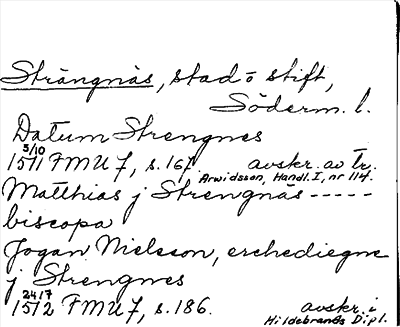 Strängnäs, stad o stift,
Söderm. l.
Datum Strengnes
5/10
1511 FMU 7, s. 167. avskr. av tr.
Arwidsson, Handl. I, nr 114.
Matthias j Strengnäs -----
biscopa
Jogan Nielsson, erchediegne
j Strengnes
24/7
1512 FMU 7, s. 186. avskr. i
Hildebrands Dipl.